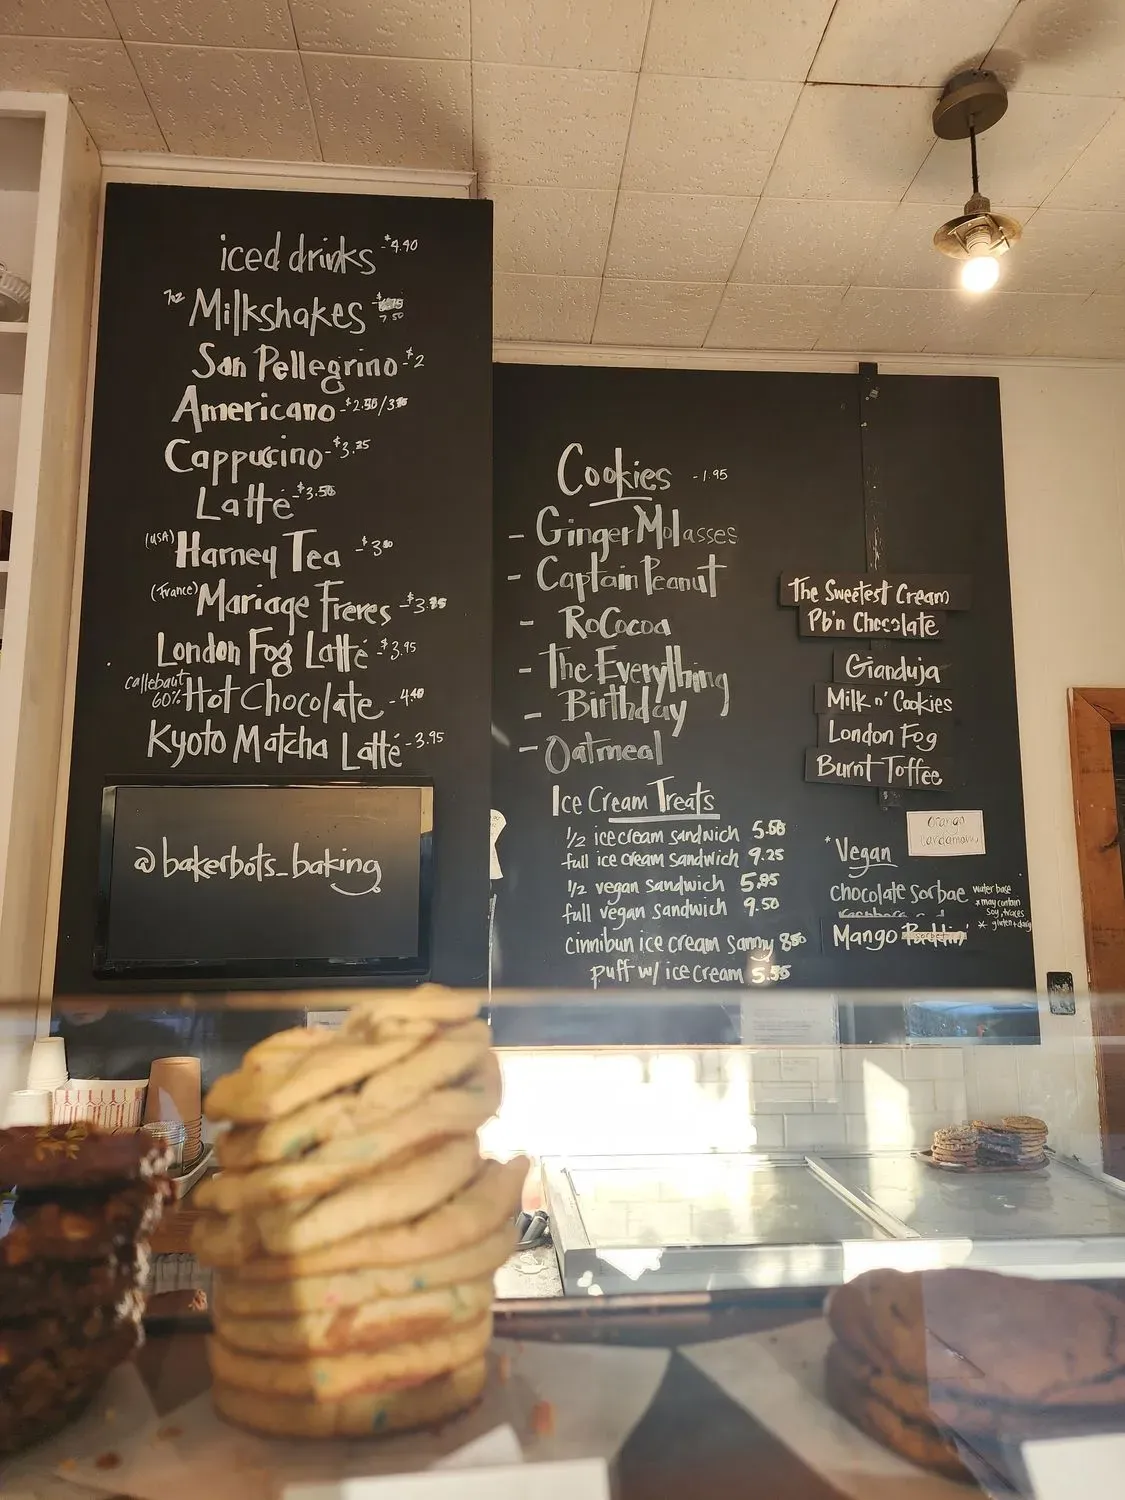 iced drinks -$4.40
7oz Milkshakes 7.50
San Pellegrino -$2
Americano -$2.50/3
Cappuccino -$3.75
Latte -$3.50
(USA) Harney Tea -$3
(France) Mariage Freres -$3.
London Fog Latte -$3.95
callebaut
60% Hot Chocolate -4.40
Kyoto Matcha Latte -3.95
@bakerbots_baking
Cookies -1.95
- Ginger Molasses
- Captain Peanut
- RoCocoa
- The Everything
- Birthday
- Oatmeal
Ice Cream Treats
1/2 ice cream sandwich 5.50
full ice cream sandwich 9.25
1/2 vegan sandwich 5.95
full vegan sandwich 9.50
cinnibun ice cream sammy 8
puff w/ ice cream 5.55
The Sweetest Cream
Pb'n Chocolate
Gianduja
Milk n' Cookies
London Fog
Burnt Toffee
Orange
Cardamom
*Vegan
chocolate sorbae
water base
*may contain
soy, traces
* gluten + dairy
Mango